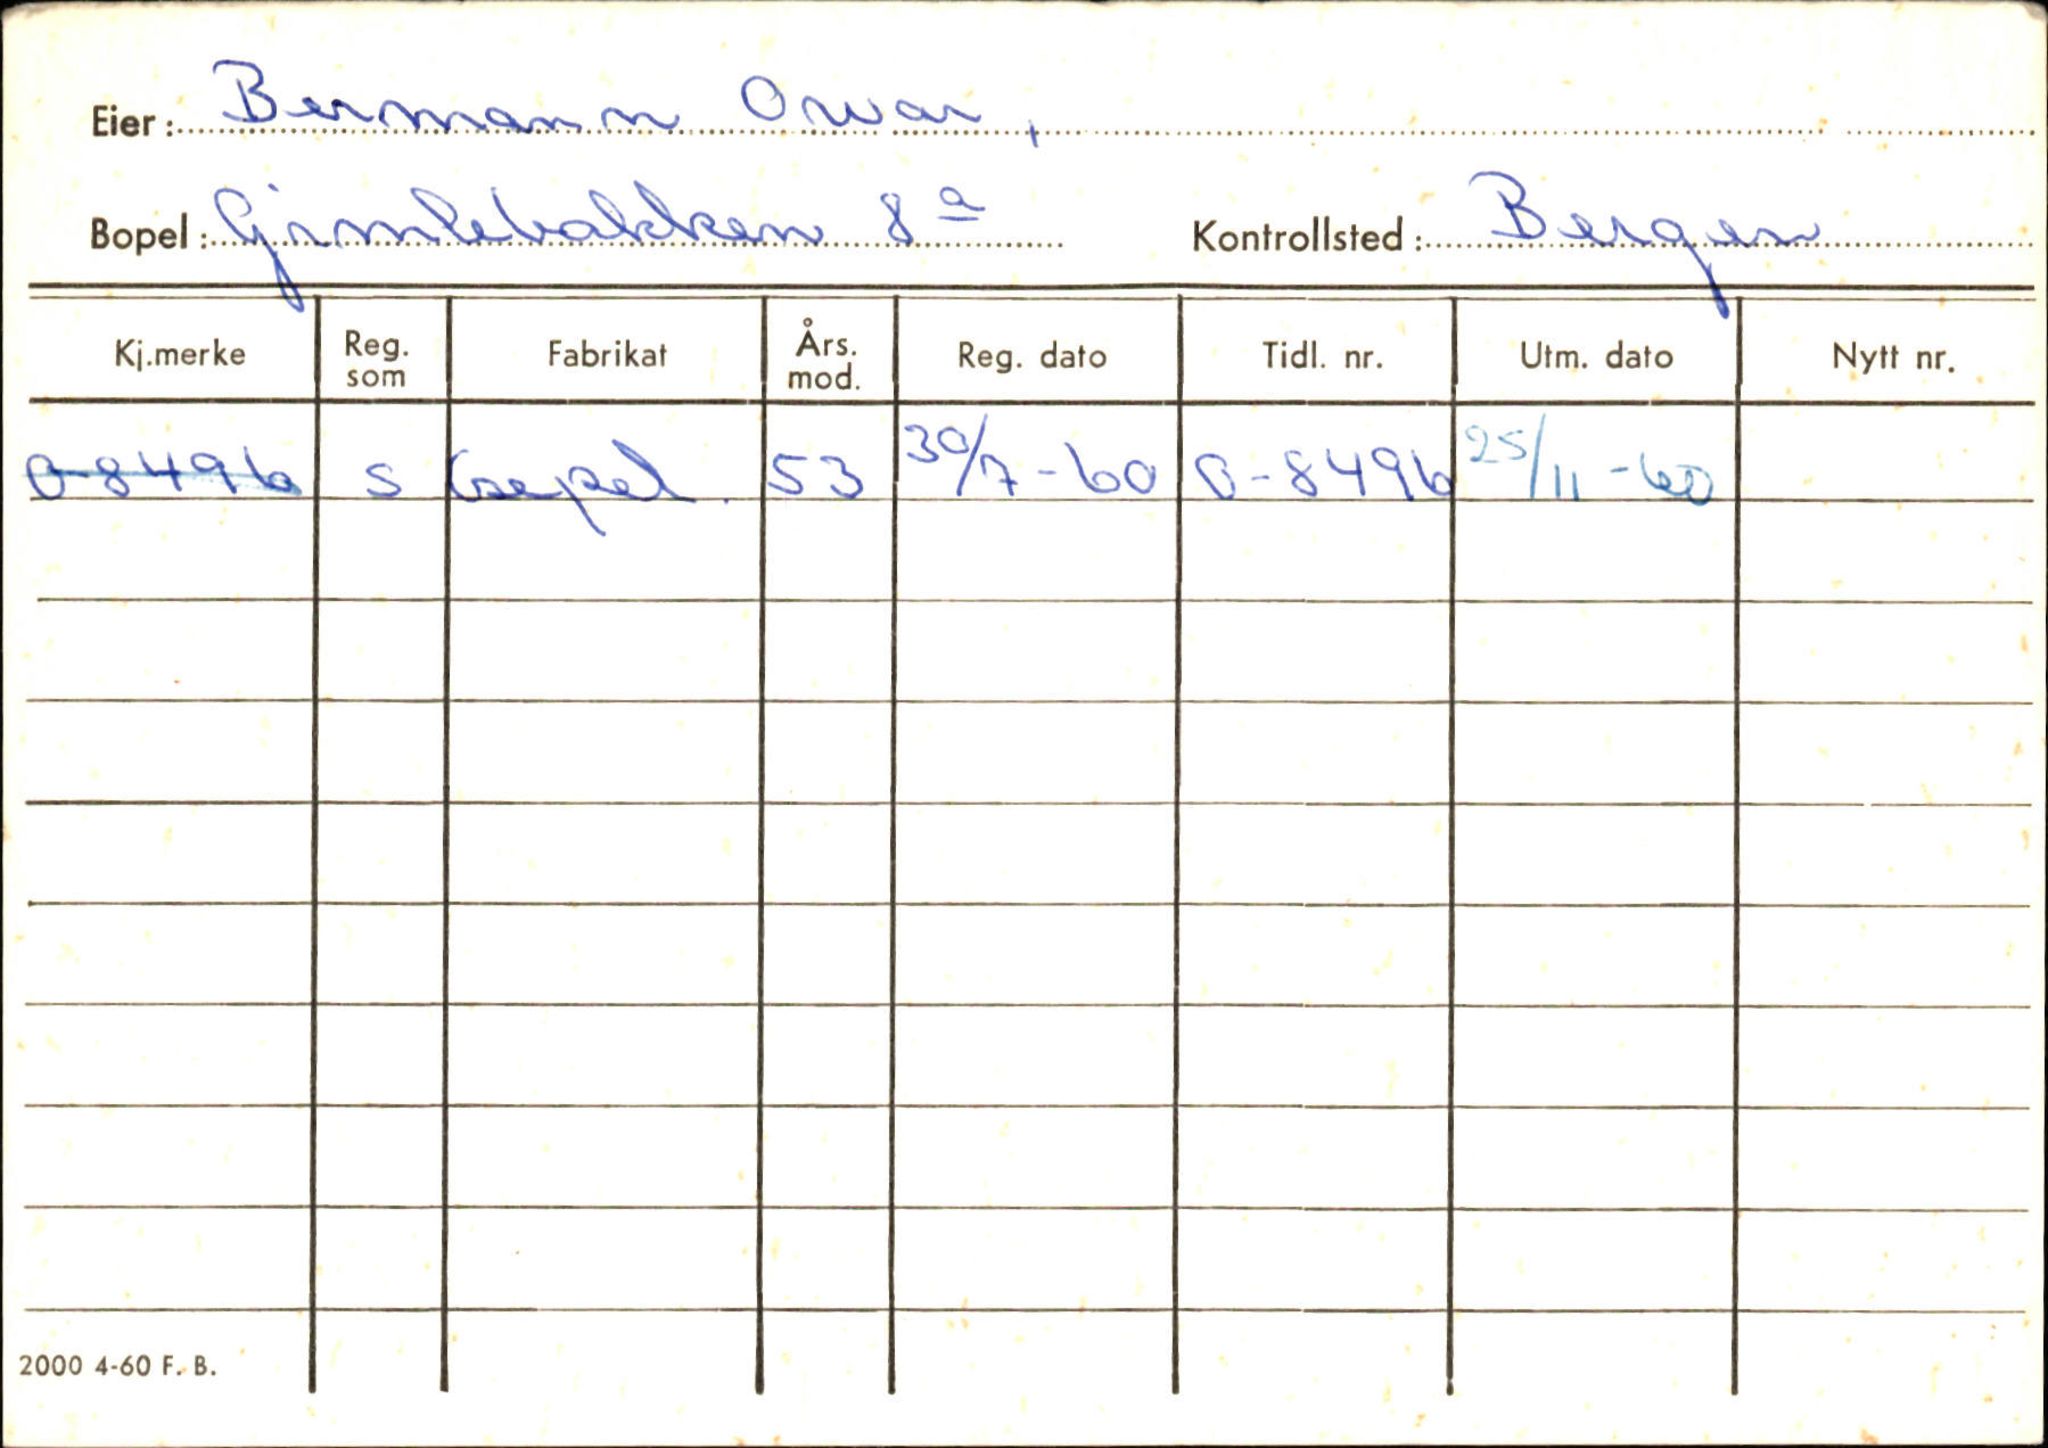 Eier: Bermann Orvar,
Bopel: Gimlebakken 8a Kontrollsted: Bergen
Kj.merke Reg. som Fabrikat Års. mod. Reg. dato Tidl. nr. Utm. dato Nytt nr.
O-8496 S Csepel. 53 30/7-60 O-8496 25/11-60
2000 4-60 F. B.